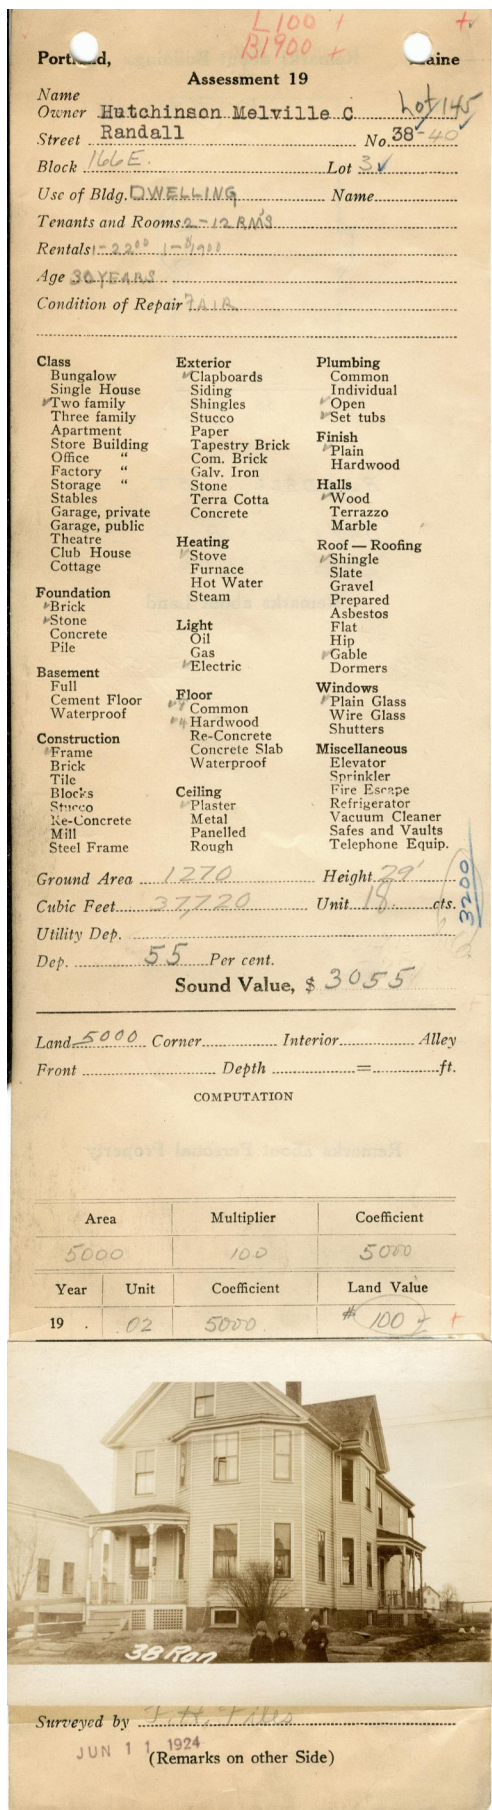 L100 +
B1900 +
+
Portland, Maine
Assessment 19
Name
Owner Hutchinson Melville C Lot 145
Street Randall No. 38-40
Block 166E. Lot 3
Use of Bldg. DWELLING Name
Tenants and Rooms 2-12 RMS
Rentals 1-22⁰⁰ 1-$19⁰⁰
Age 30 YEARS
Condition of Repair FAIR
Class
Bungalow
Single House
✓Two family
Three family
Apartment
Store Building
Office "
Factory "
Storage "
Stables
Garage, private
Garage, public
Theatre
Club House
Cottage
Foundation
✓Brick
✓Stone
Concrete
Pile
Basement
Full
Cement Floor
Waterproof
Construction
✓Frame
Brick
Tile
Blocks
Stucco
Re-Concrete
Mill
Steel Frame
Exterior
✓Clapboards
Siding
Shingles
Stucco
Paper
Tapestry Brick
Com. Brick
Galv. Iron
Stone
Terra Cotta
Concrete
Heating
✓Stove
Furnace
Hot Water
Steam
Light
Oil
Gas
✓Electric
Floor
Common
Hardwood
Re-Concrete
Concrete Slab
Waterproof
Ceiling
✓Plaster
Metal
Panelled
Rough
Plumbing
Common
Individual
✓Open
✓Set tubs
Finish
✓Plain
Hardwood
Halls
✓Wood
Terrazzo
Marble
Roof — Roofing
✓Shingle
Slate
Gravel
Prepared
Asbestos
Flat
Hip
✓Gable
Dormers
Windows
✓Plain Glass
Wire Glass
Shutters
Miscellaneous
Elevator
Sprinkler
Fire Escape
Refrigerator
Vacuum Cleaner
Safes and Vaults
Telephone Equip.
Ground Area 1270 Height 29'
Cubic Feet 37,720 Unit 18 cts.
3200
Utility Dep.
Dep. 55 Per cent.
Sound Value, $ 3055
Land 5000 Corner Interior Alley
Front Depth = ft.
COMPUTATION
Area Multiplier Coefficient
5000 100 5000
Year Unit Coefficient Land Value
19 . .02 5000 $ 100 +
38 Ran
Surveyed by
JUN 11 1924
(Remarks on other Side)